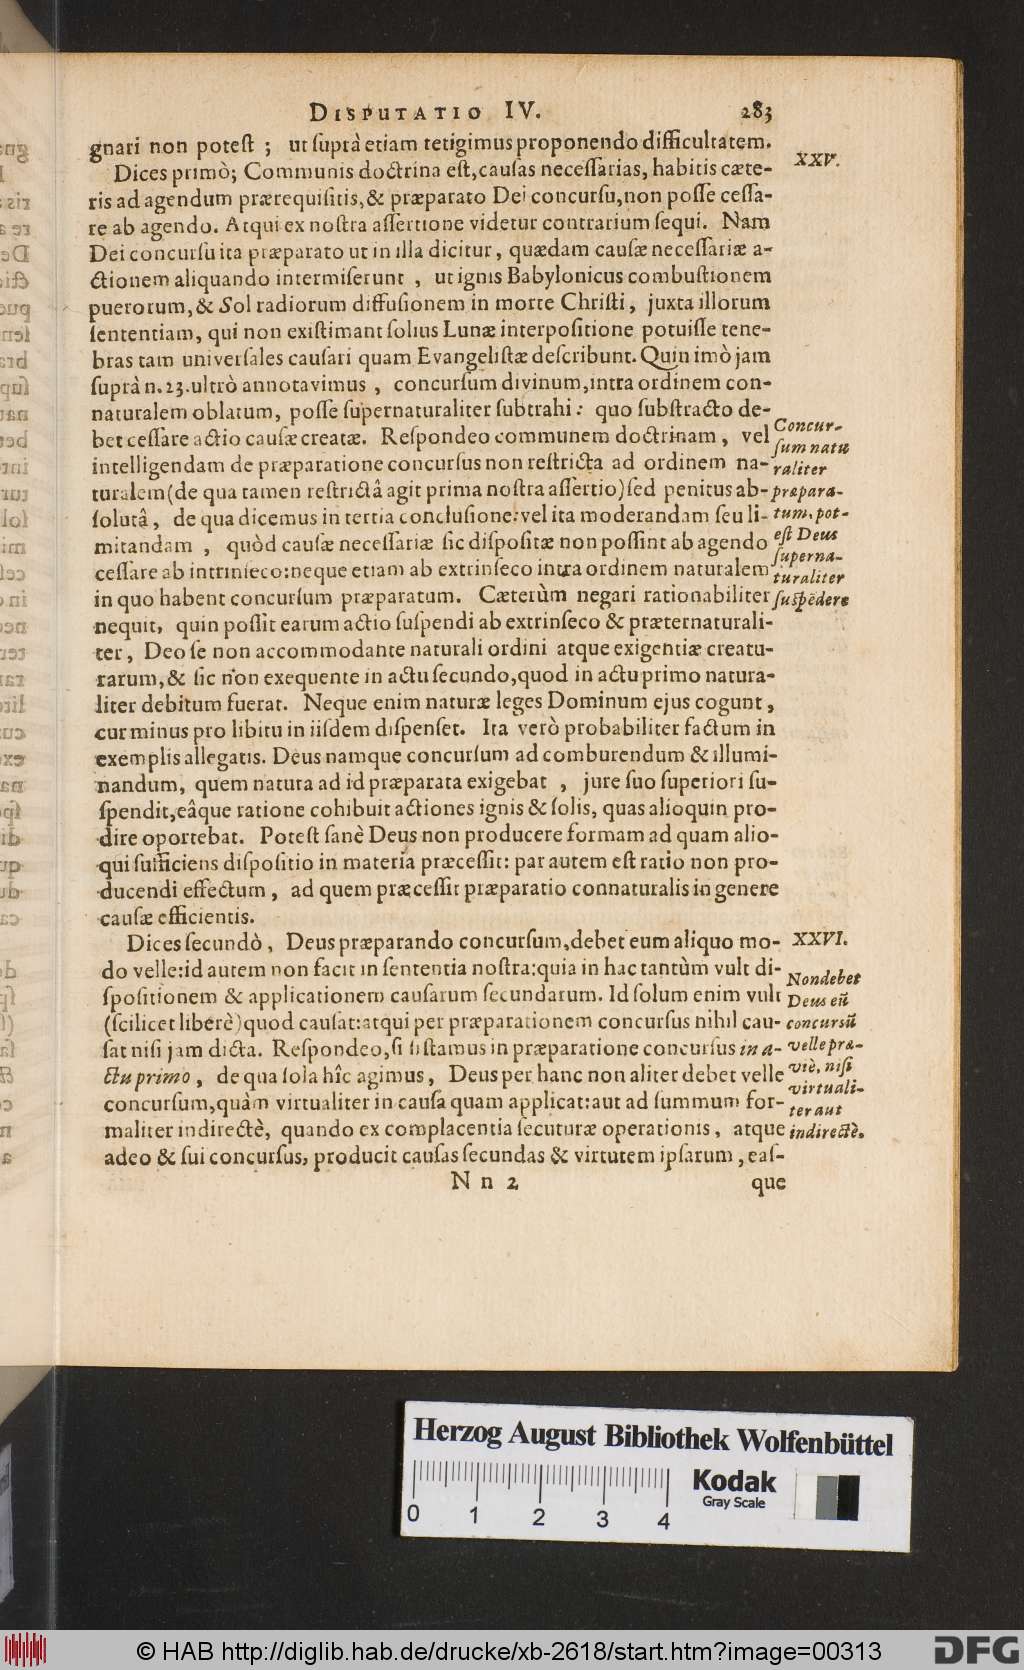 DISPUTATIO IV. 283
gnari non potest ; ut suprà etiam tetigimus proponendo difficultatem.
XXV.
Dices primò; Communis doctrina est, causas necessarias, habitis cæte-
ris ad agendum prærequisitis, & præparato Dei concursu, non posse cessa-
re ab agendo. Atqui ex nostra assertione videtur contrarium sequi. Nam
Dei concursu ita præparato ut in illa dicitur, quædam causæ necessariæ a-
ctionem aliquando intermiserunt , ut ignis Babylonicus combustionem
puerorum, & Sol radiorum diffusionem in morte Christi, juxta illorum
sententiam, qui non existimant solius Lunæ interpositione potuisse tene-
bras tam universales causari quam Evangelistæ describunt. Quin imò jam
suprà n. 23. ultrò annotavimus , concursum divinum, intra ordinem con-
naturalem oblatum, posse supernaturaliter subtrahi: quo substracto de-
bet cessare actio causæ creatæ. Respondeo communem doctrinam, vel
intelligendam de præparatione concursus non restricta ad ordinem na-
turalem (de qua tamen restrictâ agit prima nostra assertio) sed penitus ab-
solutâ, de qua dicemus in tertia conclusione: vel ita moderandam seu li-
mitandam , quòd causæ necessariæ sic dispositæ non possint ab agendo
cessare ab intrinseco: neque etiam ab extrinseco intra ordinem naturalem
in quo habent concursum præparatum. Cæterùm negari rationabiliter
nequit, quin possit earum actio suspendi ab extrinseco & præternaturali-
ter, Deo se non accommodante naturali ordini atque exigentiæ creatu-
rarum, & sic non exequente in actu secundo, quod in actu primo natura-
liter debitum fuerat. Neque enim naturæ leges Dominum ejus cogunt,
cur minus pro libitu in iisdem dispenset. Ita verò probabiliter factum in
exemplis allegatis. Deus namque concursum ad comburendum & illumi-
nandum, quem natura ad id præparata exigebat , jure suo superiori su-
spendit, eâque ratione cohibuit actiones ignis & solis, quas alioquin pro-
dire oportebat. Potest sanè Deus non producere formam ad quam alio-
qui sufficiens dispositio in materia præcessit: par autem est ratio non pro-
ducendi effectum, ad quem præcessit præparatio connaturalis in genere
causæ efficientis.
Concur-
sum natu
raliter
præpara-
tum, pot-
est Deus
superna-
turaliter
suspēdere
XXVI.
Dices secundò, Deus præparando concursum, debet eum aliquo mo-
do velle: id autem non facit in sententia nostra: quia in hac tantùm vult di-
spositionem & applicationem causarum secundarum. Id solum enim vult
(scilicet liberè) quod causat: atqui per præparationem concursus nihil cau-
sat nisi jam dicta. Respondeo, si sistamus in præparatione concursus in a-
ctu primo, de qua sola hîc agimus, Deus per hanc non aliter debet velle
concursum, quàm virtualiter in causa quam applicat: aut ad summum for-
maliter indirectè, quando ex complacentia secuturæ operationis, atque
adeo & sui concursus, producit causas secundas & virtutem ipsarum, eas-
Non debet
Deus eū
concursū
velle præ-
viè, nisi
virtuali-
ter aut
indirectè.
Nn 2 que
Herzog August Bibliothek Wolfenbüttel
Kodak
Gray Scale
0 1 2 3 4
© HAB http://diglib.hab.de/drucke/xb-2618/start.htm?image=00313
DFG